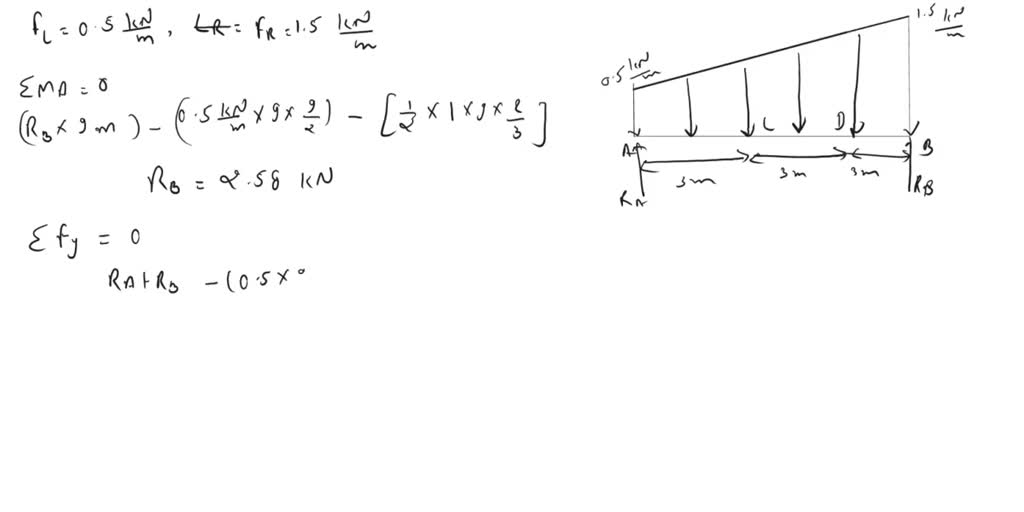 fL = 0.5 kN/m, LR = fR = 1.5 kN/m
ΣMA = 0
(RB × 9 m) − (0.5 kN/m × 9 × 9/2) − [1/2 × 1 × 9 × 2/3]
RB = 2.58 kN
Σfy = 0
RA + RB − (0.5 ×
1.5 kN/m
0.5 kN/m
A C D B
3m 3m 3m
RA RB